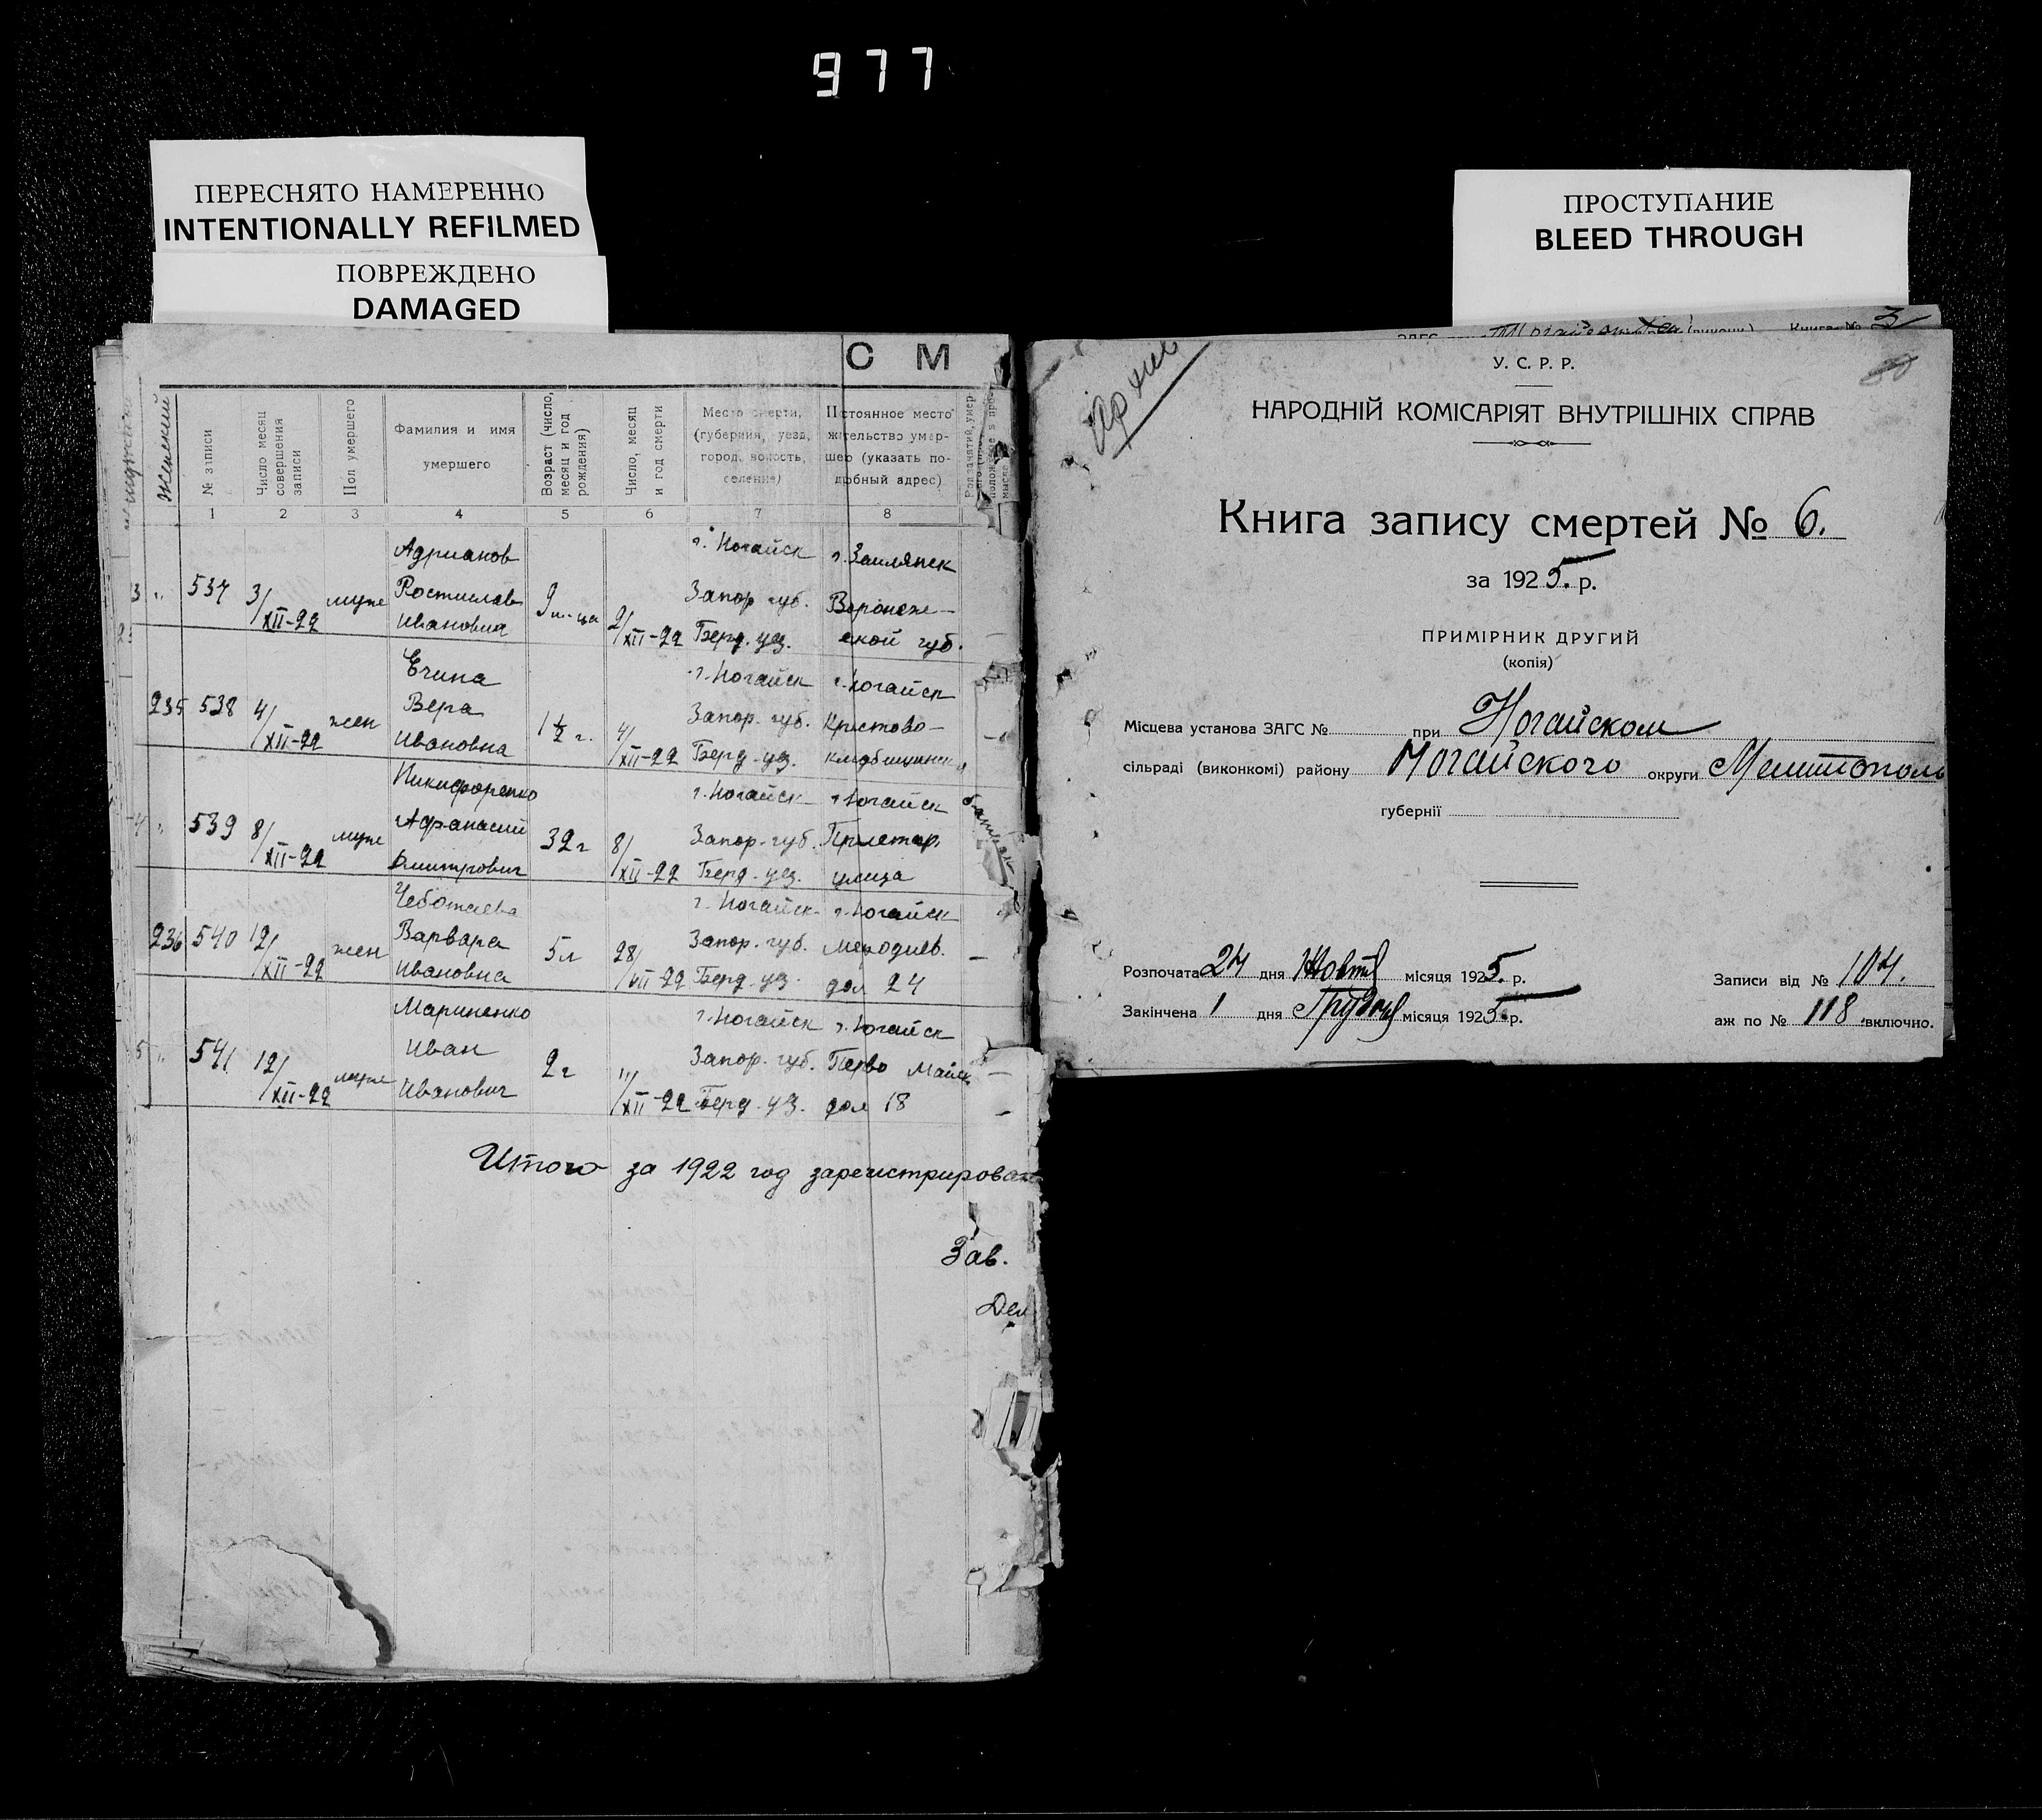 977
ПЕРЕСНЯТО НАМЕРЕННО
INTENTIONALLY REFILMED
ПОВРЕЖДЕНО
DAMAGED
ПРОСТУПАНИЕ
BLEED THROUGH
С М
женский
№ записи
Число месяц совершения записи
Пол умершего
Фамилия и имя умершего
Возраст (число, месяц и год рождения)
Число, месяц и год смерти
Место смерти, (губерния, уезд, город, волость, селение)
Постоянное место жительство умершего (указать подробный адрес)
1 2 3 4 5 6 7 8
Адрианов г. Ногайск г. Землянск
3 " 537 3/XII-22 муж Ростислав 9 м-ца 2/XII-22 Запор губ. Воронеж-
Иванович Берд. уз. ской губ.
Ечина г. Ногайск г. Ногайск
235 538 4/XII-22 жен Вера 1½ г. 4/XII-22 Запор. губ. Кристово-
Ивановна Берд. уз.
Никифоренко г. Ногайск г. Ногайск
4 " 539 8/XII-22 муж Афанасий 32 г 8/XII-22 Запор. губ. Пролетар.
Дмитрович Берд. уз. улица
Чеботаева г. Ногайск г. Ногайск
236 540 12/XII-22 жен Варвара 5 л 28/VII-22 Запор. губ. Мефодиев.
Ивановна Берд. уз. дом 24
Мариненко г. Ногайск г. Ногайск
5 " 541 12/XII-22 муж Иван 2 г 11/XII-22 Запор. губ. Перво Майск
Иванович Берд. уз. дом 18
Итого за 1922 год зарегистрирован
Зав.
Дел
Книга № 3
Архив
80
У. С. Р. Р.
НАРОДНІЙ КОМІСАРІЯТ ВНУТРІШНІХ СПРАВ
Книга запису смертей № 6.
за 1925. р.
ПРИМІРНИК ДРУГИЙ
(копія)
Місцева установа ЗАГС № при Ногайском
сільраді (виконкомі) району Ногайского округи Мелитополь
губернії
Розпочата 24 дня Жовтня місяця 1925. р. Записи від № 104.
Закінчена 1 дня Грудня місяця 1925. р. аж по № 118 включно.